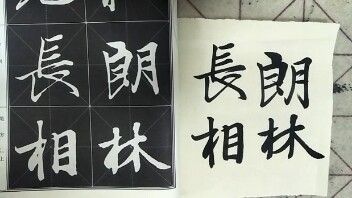 長朗
相林
長朗
相林